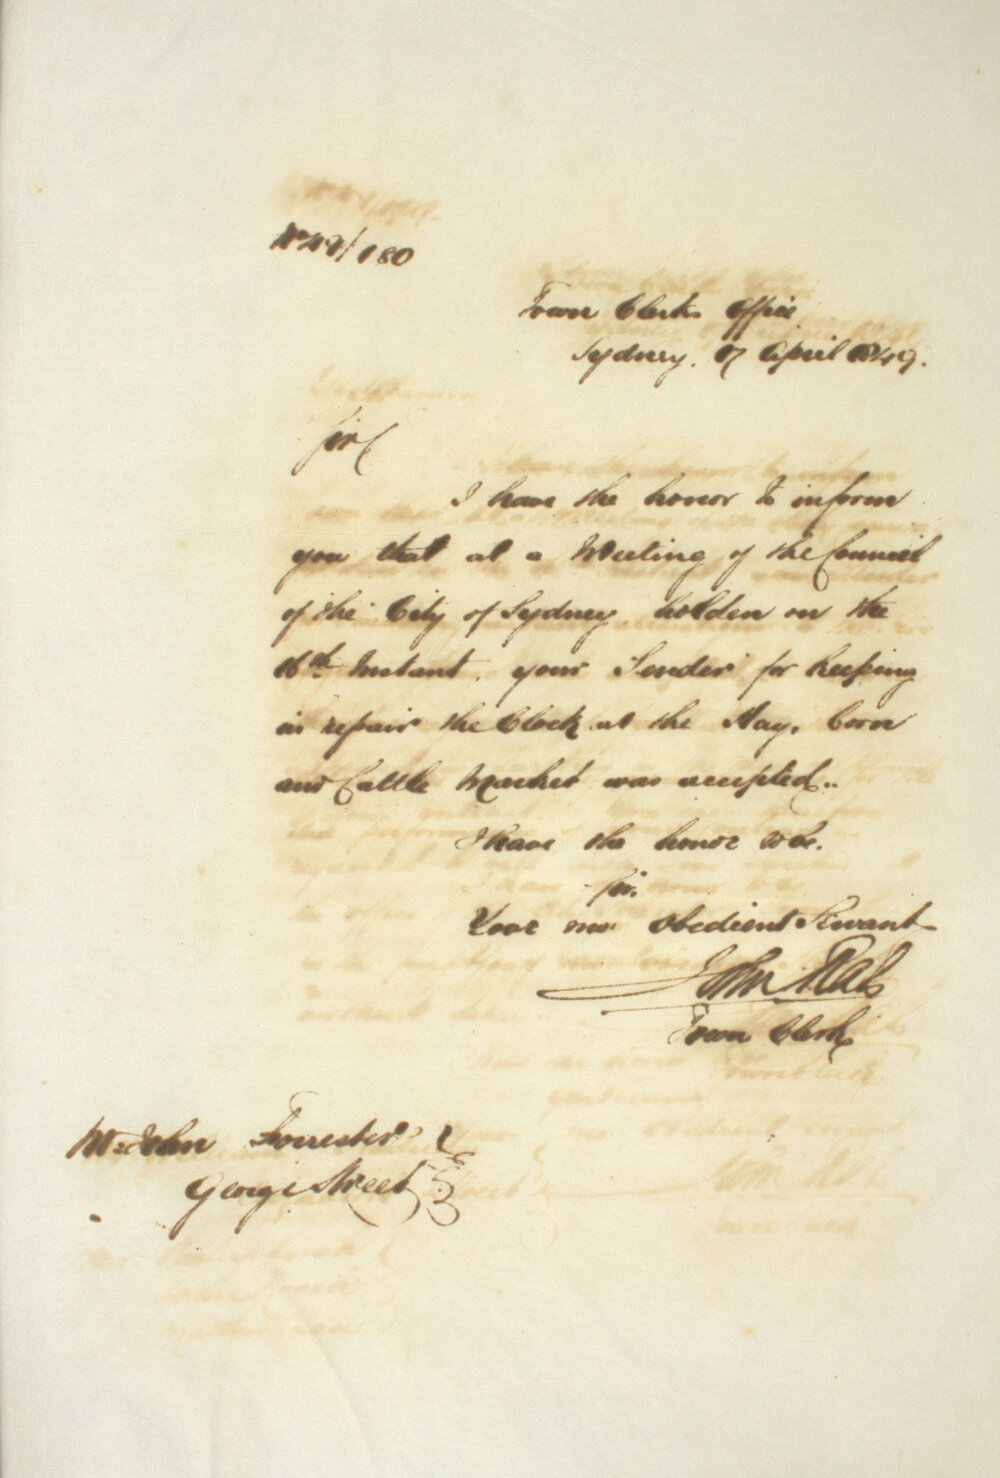 No 49/180
Town Clerks Office
Sydney. 17 April 1849.
Sir
I have the honor to inform
you that at a Meeting of the Council
of the City of Sydney, holden on the
16th Instant, your Tender for keeping
in repair the Clock at the Hay, Corn
and Cattle Market was accepted..
I have the honor to be.
Sir.
Your mo obedient Servant
John Rae
Town Clerk
Mr John Forrester
George Street